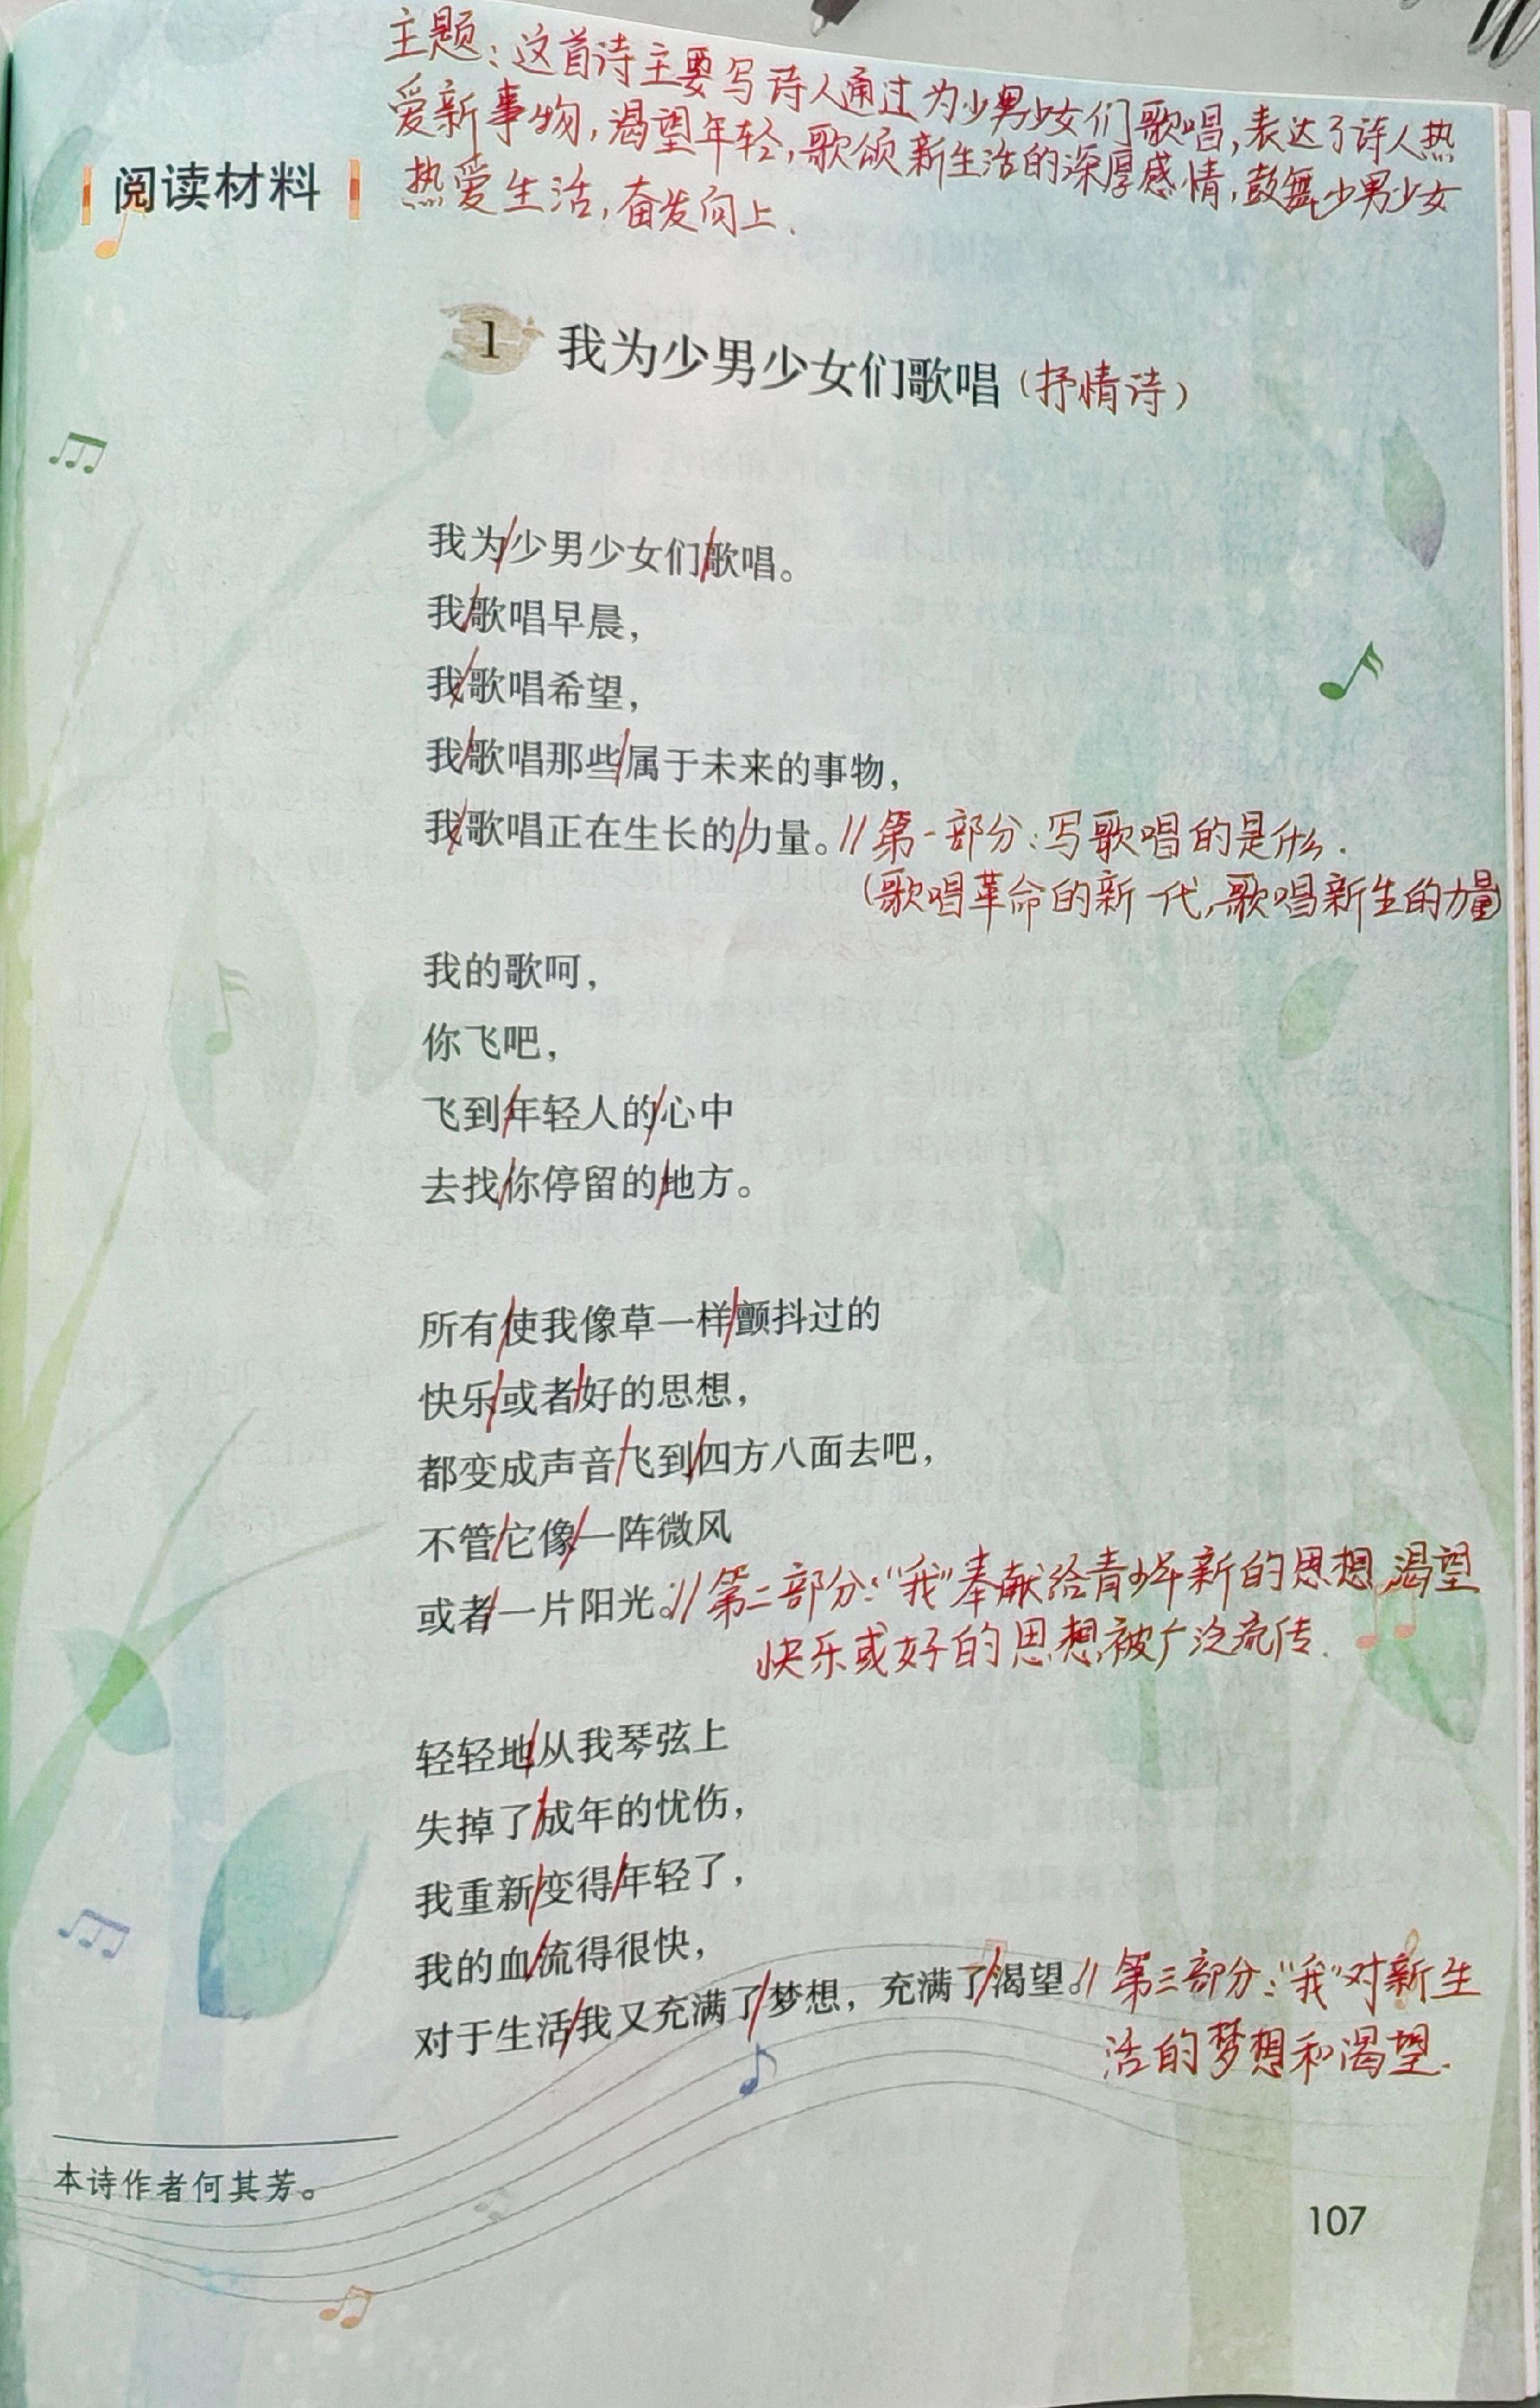 主题:这首诗主要写诗人通过为少男少女们歌唱,表达了诗人热
爱新事物,渴望年轻,歌颂新生活的深厚感情,鼓舞少男少女
热爱生活,奋发向上.
阅读材料
1 我为少男少女们歌唱(抒情诗)
我为/少男少女们/歌唱。
我/歌唱早晨，
我/歌唱希望，
我/歌唱那些/属于未来的事物，
我/歌唱正在生长的/力量。//第一部分:写歌唱的是什么.
(歌唱革命的新一代,歌唱新生的力量)
我的歌呵，
你飞吧，
飞到/年轻人的/心中
去找/你停留的/地方。
所有/使我像草一样/颤抖过的
快乐/或者/好的思想，
都变成声音/飞到/四方八面去吧，
不管/它像/一阵微风
或者/一片阳光。//第二部分:“我”奉献给青少年新的思想,渴望
快乐或好的思想被广泛流传.
轻轻地/从我琴弦上
失掉了/成年的忧伤，
我重新/变得/年轻了，
我的血/流得很快，
对于生活/我又充满了/梦想，充满了/渴望。//第三部分:“我”对新生
活的梦想和渴望.
本诗作者何其芳。
107